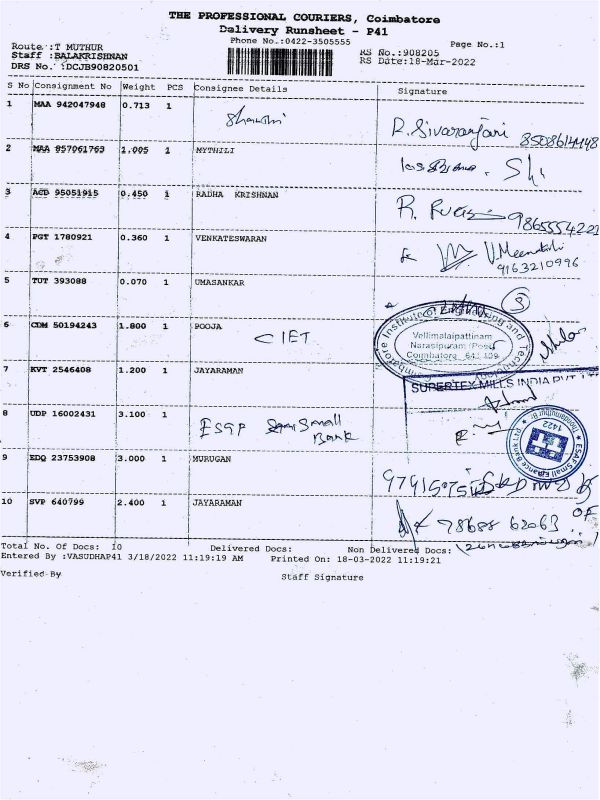 THE PROFESSIONAL COURIERS, Coimbatore
Delivery Runsheet - P41
Phone No.:0422-3505555
Page No.:1
Route :T MUTHUR
RS No.:908205
Staff :BALAKRISHNAN
RS Date:18-Mar-2022
DRS No. :DCJB90820501
S No Consignment No Weight PCS Consignee Details Signature
1 MAA 942047948 0.713 1
R. Sivaranjani
2 MAA 857061763 1.005 1 MYTHILI
3 ACD 95051915 0.450 1 RADHA KRISHNAN
4 PGT 1780921 0.360 1 VENKATESWARAN
V. Meenakshi
9163210996
5 TUT 393088 0.070 1 UMASANKAR
3
6 CDM 50194243 1.800 1 POOJA
CIET
Coimbatore Institute of Engineering and Technology
Vellimalaipattinam
Narasipuram (Post)
Coimbatore 641 109
7 KVT 2546408 1.200 1 JAYARAMAN
SUPERTEX MILLS INDIA PVT LTD
8 UDP 16002431 3.100 1
ESAF Small
Bank
ESAF Small Finance Bank Ltd
1422
9 EDQ 23753908 3.000 1 MURUGAN
10 SVP 640799 2.400 1 JAYARAMAN
78688 62063
Total No. Of Docs: 10 Delivered Docs: Non Delivered Docs:
Entered By :VASUDHAP41 3/18/2022 11:19:19 AM Printed On: 18-03-2022 11:19:21
Verified By Staff Signature